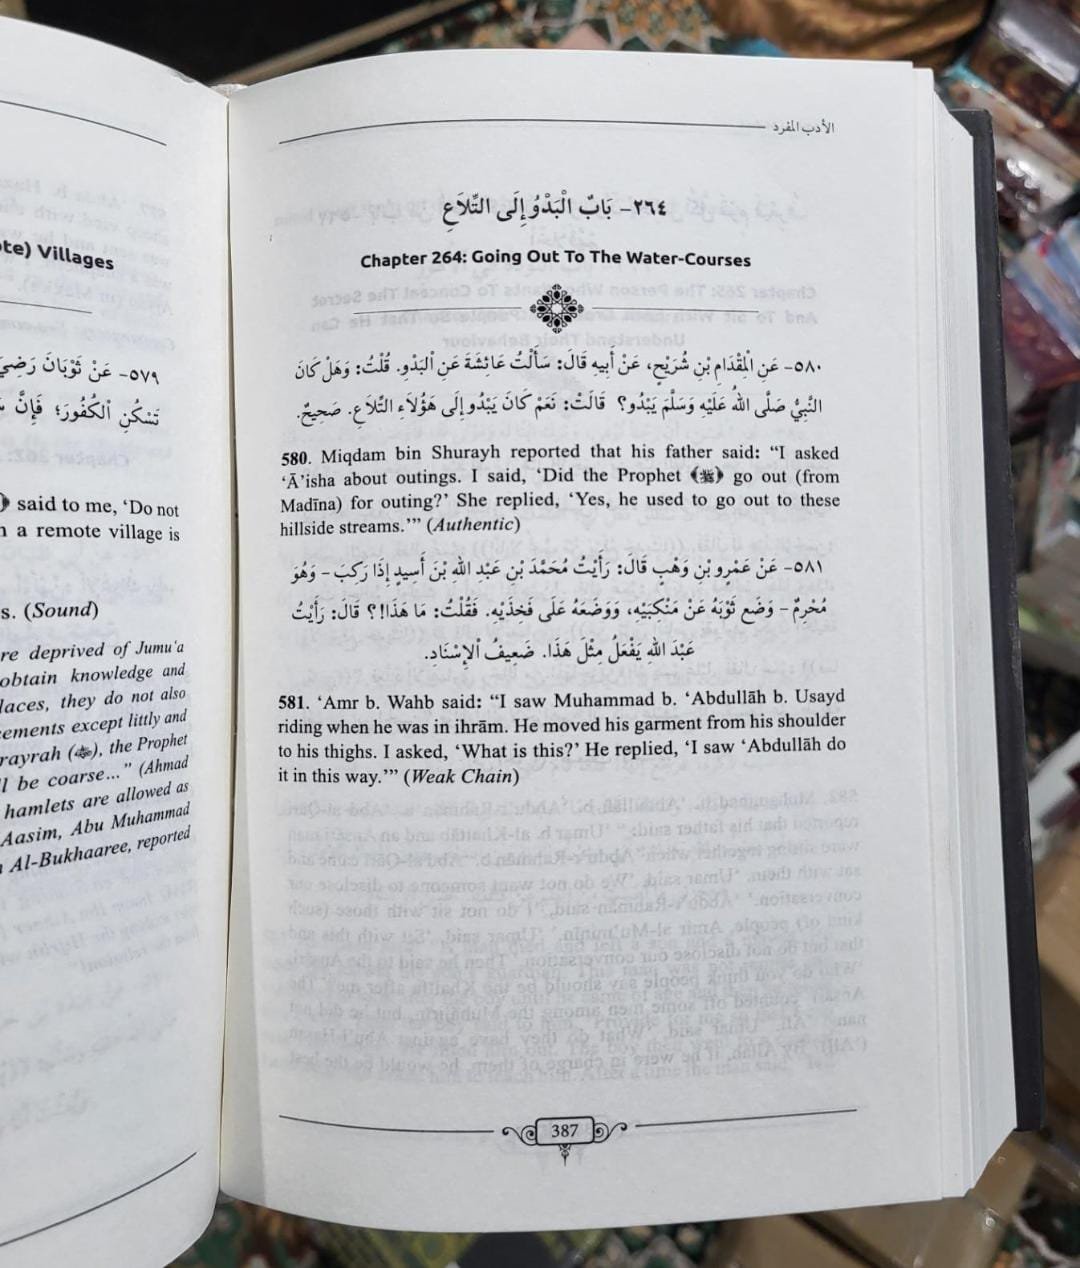 ote) Villages
٥٧٩- عَنْ ثَوْبَانَ رَضِيَ
تَسْكُنِ الْكُفُورَ؛ فَإِنَّ
said to me, ‘Do not
a remote village is
s. (Sound)
re deprived of Jumu‘a
obtain knowledge and
laces, they do not also
cements except littly and
rayrah (ﷺ), the Prophet
l be coarse...” (Ahmad
hamlets are allowed as
Aasim, Abu Muhammad
Al-Bukhaaree, reported
الأدب المفرد
٢٦٤- بَابُ الْبَدْوُ إِلَى التِّلَاعِ
Chapter 264: Going Out To The Water-Courses
٥٨٠- عَنِ الْمِقْدَامِ بْنِ شُرَيْحٍ، عَنْ أَبِيهِ قَالَ: سَأَلْتُ عَائِشَةَ عَنِ الْبَدْوِ. قُلْتُ: وَهَلْ كَانَ
النَّبِيُّ صَلَّى اللهُ عَلَيْهِ وَسَلَّمَ يَبْدُو؟ قَالَتْ: نَعَمْ كَانَ يَبْدُو إِلَى هَؤُلَاءِ التِّلَاعِ. صَحِيحٌ.
580. Miqdam bin Shurayh reported that his father said: “I asked
‘Ā’isha about outings. I said, ‘Did the Prophet (ﷺ) go out (from
Madīna) for outing?’ She replied, ‘Yes, he used to go out to these
hillside streams.’” (Authentic)
٥٨١- عَنْ عَمْرِو بْنِ وَهْبٍ قَالَ: رَأَيْتُ مُحَمَّدَ بْنِ عَبْدِ اللهِ بْنَ أَسِيدٍ إِذَا رَكِبَ - وَهُوَ
مُحْرِمٌ - وَضَعَ ثَوْبَهُ عَنْ مَنْكِبَيْهِ، وَوَضَعَهُ عَلَى فَخِذَيْهِ. فَقُلْتُ: مَا هَذَا!؟ قَالَ: رَأَيْتُ
عَبْدَ اللهِ يَفْعَلُ مِثْلَ هَذَا. ضَعِيفُ الْإِسْنَادِ.
581. ‘Amr b. Wahb said: “I saw Muhammad b. ‘Abdullāh b. Usayd
riding when he was in ihrām. He moved his garment from his shoulder
to his thighs. I asked, ‘What is this?’ He replied, ‘I saw ‘Abdullāh do
it in this way.’” (Weak Chain)
387